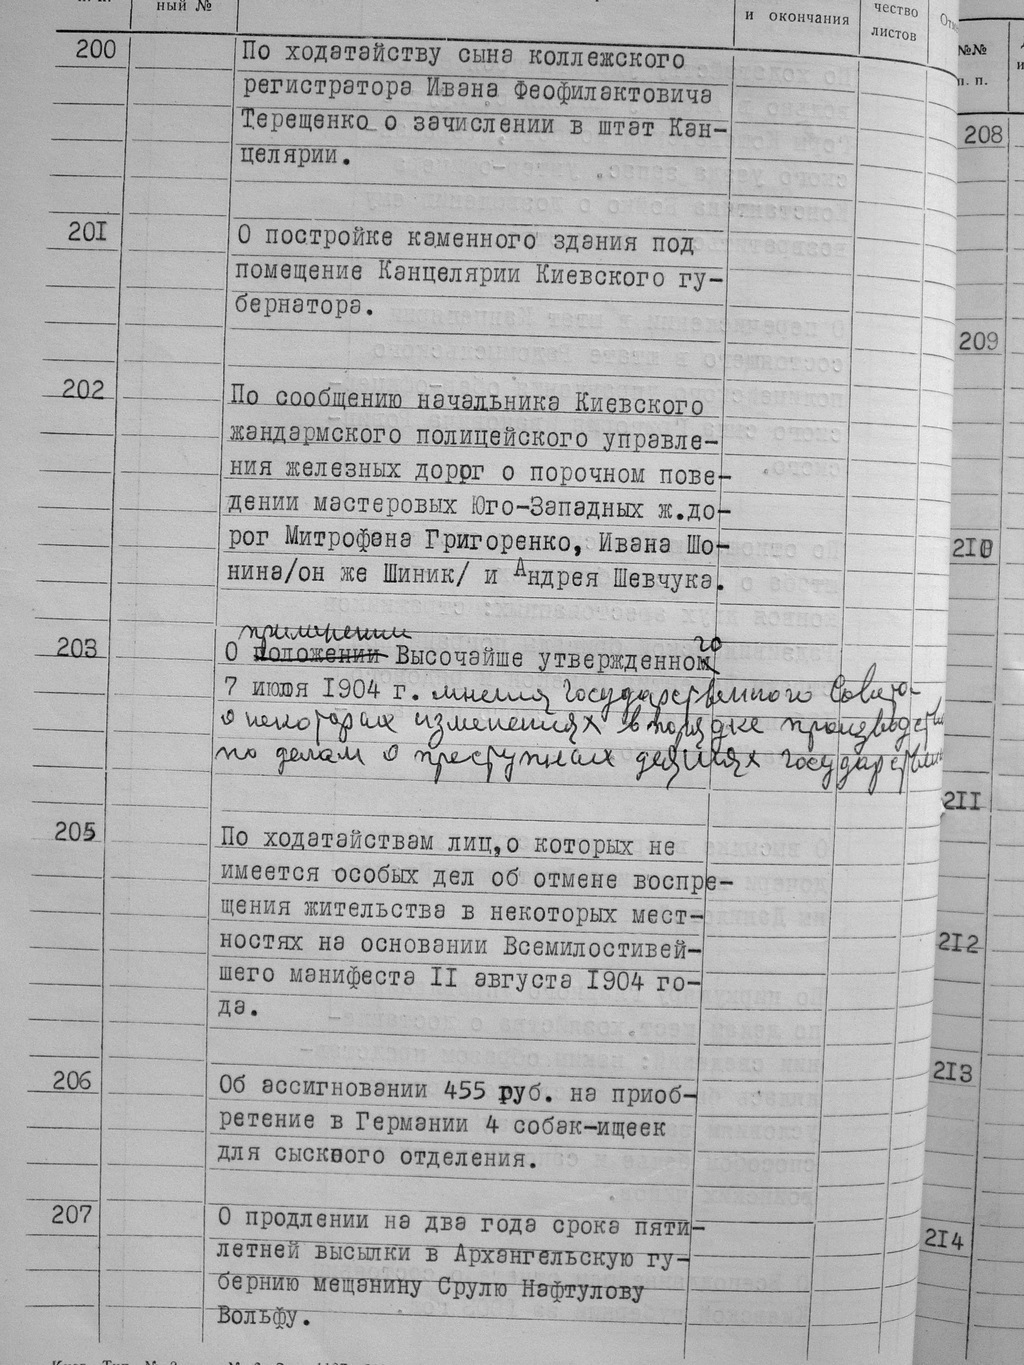 ный №
и окончания
чество
листов
№№
п. п.
200
По ходатайству сына коллежского
регистратора Ивана Феофилактовича
Терещенко о зачислении в штат Кан-
целярии.
201
О постройке каменного здания под
помещение Канцелярии Киевского гу-
бернатора.
202
По сообщению начальника Киевского
жандармского полицейского управле-
ния железных дорог о порочном пове-
дении мастеровых Юго-Западных ж.до-
рог Митрофана Григоренко, Ивана Шо-
нина/он же Шиник/ и Андрея Шевчука.
203
применении
О Положении Высочайше утвержденного
7 июля 1904 г. мнения Государственного Совета
о некоторых изменениях в порядке производства
по делам о преступных деяниях государствен
205
По ходатайствам лиц, о которых не
имеется особых дел об отмене воспре-
щения жительства в некоторых мест-
ностях на основании Всемилостивей-
шего манифеста II августа I904 го-
да.
206
Об ассигновании 455 руб. на приоб-
ретение в Германии 4 собак-ищеек
для сыскного отделения.
207
О продлении на два года срока пяти-
летней высылки в Архангельскую гу-
бернию мещанину Срулю Нафтулову
Вольфу.
208
209
210
211
212
213
214